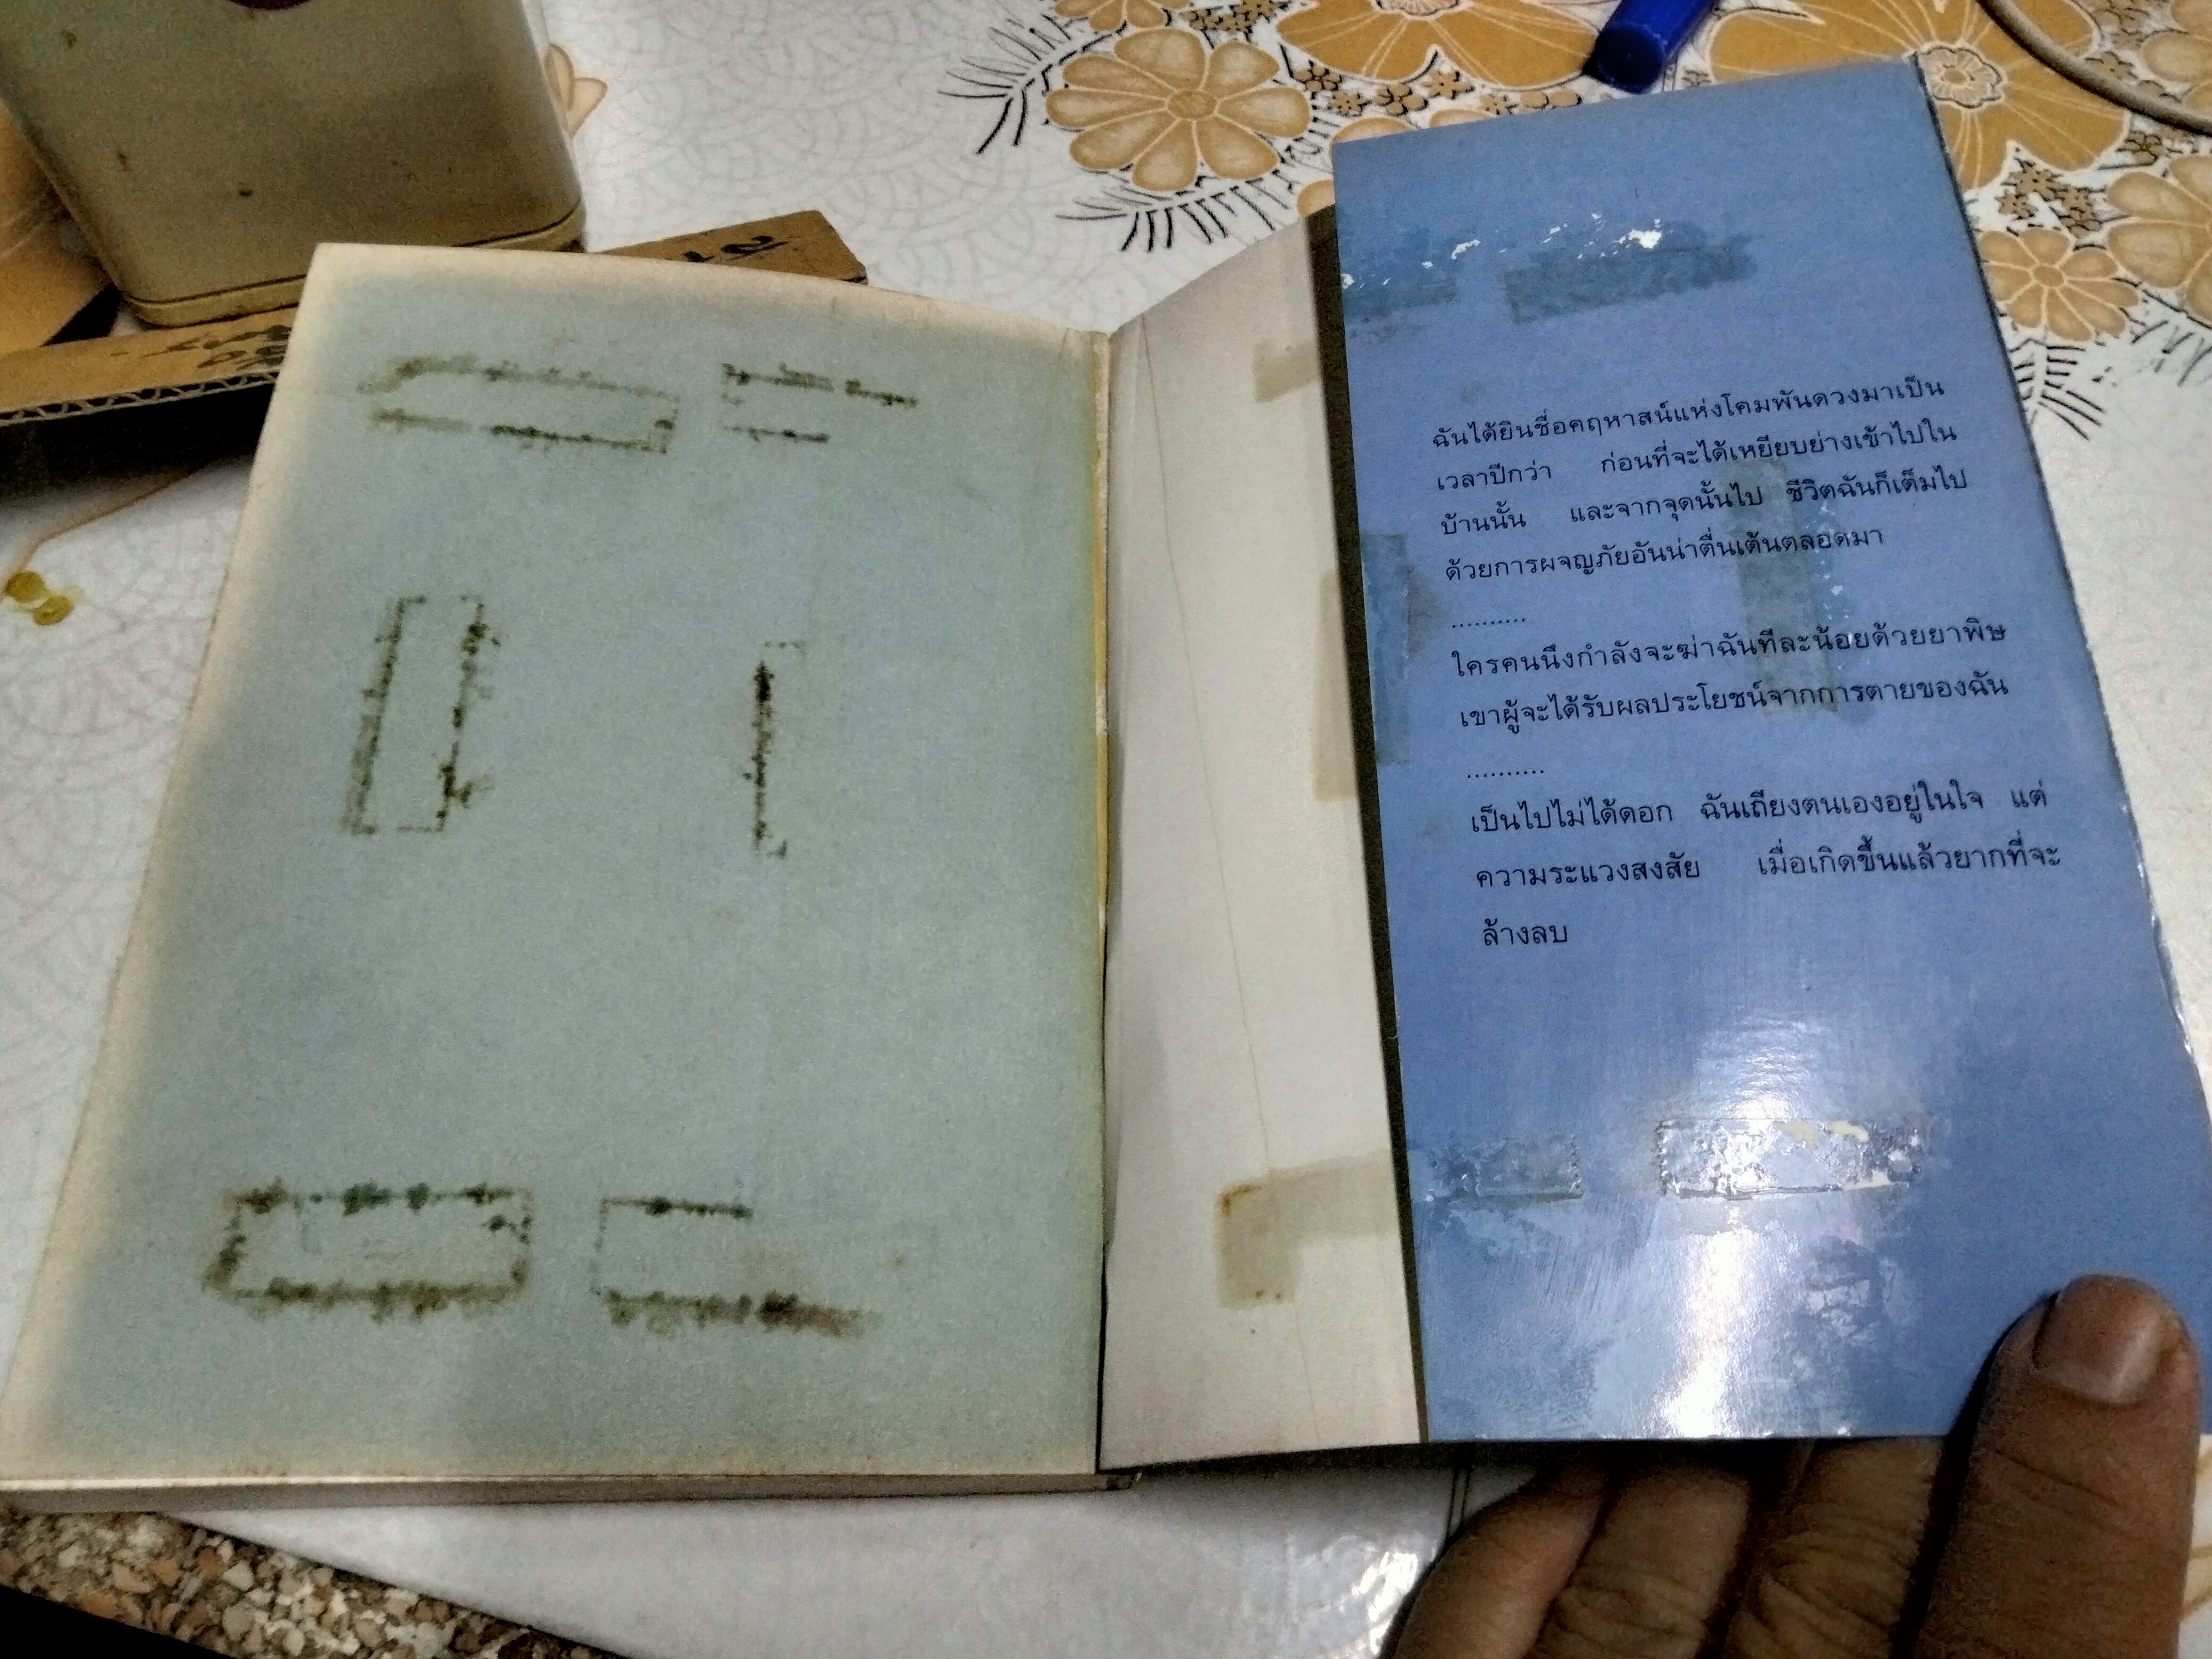 ฉันได้ยินชื่อคฤหาสน์แห่งโคมพันดวงมาเป็น
เวลาปีกว่า ก่อนที่จะได้เหยียบย่างเข้าไปใน
บ้านนั้น และจากจุดนั้นไป ชีวิตฉันก็เต็มไป
ด้วยการผจญภัยอันน่าตื่นเต้นตลอดมา
..........
ใครคนนึงกำลังจะฆ่าฉันทีละน้อยด้วยยาพิษ
เขาผู้จะได้รับผลประโยชน์จากการตายของฉัน
..........
เป็นไปไม่ได้ดอก ฉันเถียงตนเองอยู่ในใจ แต่
ความระแวงสงสัย เมื่อเกิดขึ้นแล้วยากที่จะ
ล้างลบ